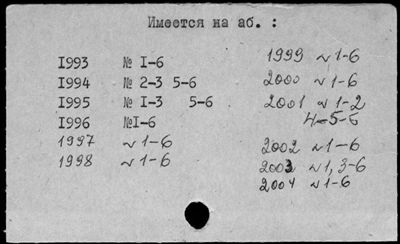 Имеется на аб. :
I993 № I-6
I994 № 2-3 5-6
I995 № I-3 5-6
I996 №I-6
1997 ~ 1-6
1998 ~ 1-6
1999 ~ 1-6
2000 ~ 1-6
2001 ~ 1-2
4-5-6
2002 ~ 1-6
2003 ~ 1, 3-6
2004 ~ 1-6